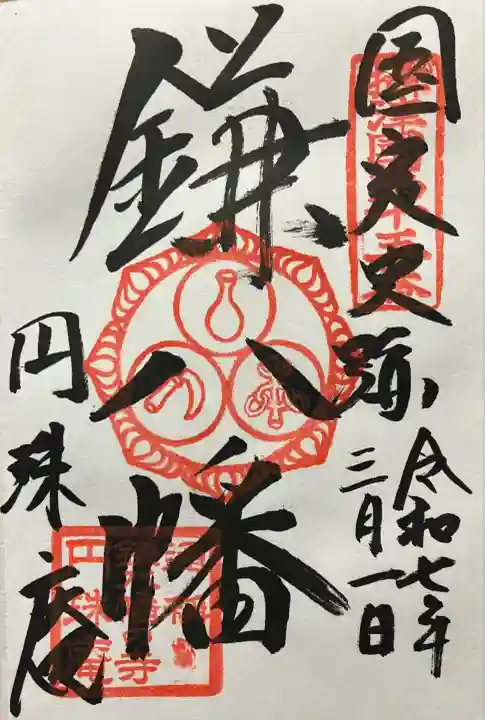 国定史跡
令和七年
三月一日
鎌八幡
円珠庵